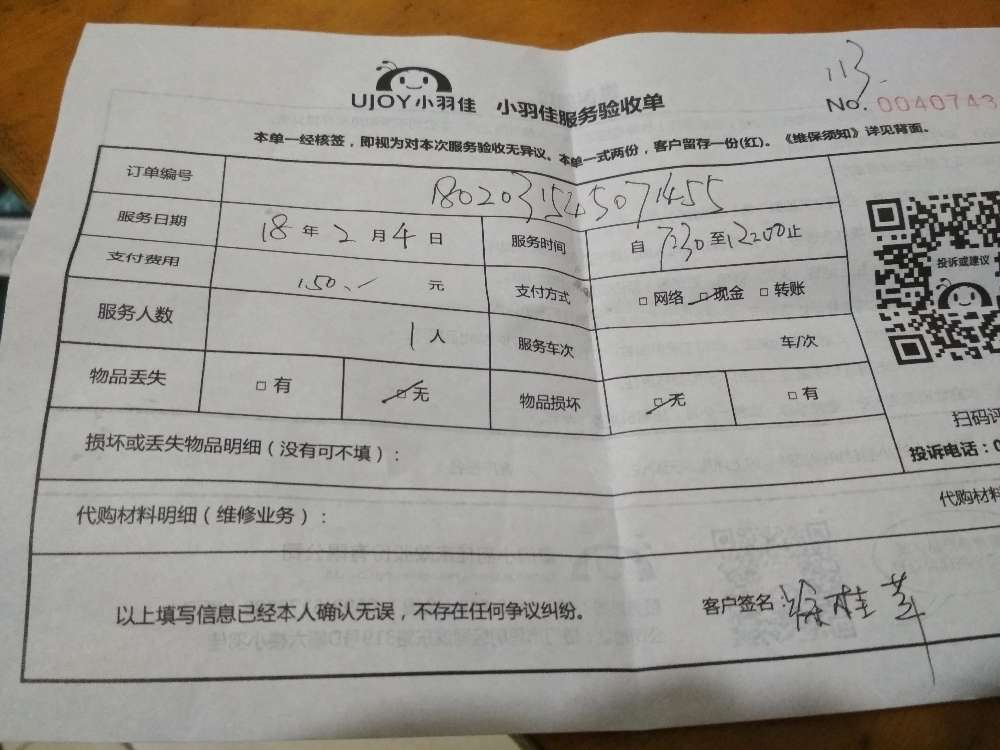 113.
UJOY小羽佳 小羽佳服务验收单
No. 0040743
本单一经核签，即视为对本次服务验收无异议。本单一式两份，客户留存一份(红)。《维保须知》详见背面。
订单编号 1802031545071455
服务日期 18 年 2 月 4 日 服务时间 自 7:30 至 12:00 止
支付费用 150.- 元 支付方式 □ 网络 □ 现金 □ 转账
投诉或建议
服务人数 1 人 服务车次 车/次
物品丢失 □ 有 □ 无 物品损坏 □ 无 □ 有
扫码评
损坏或丢失物品明细（没有可不填）：
投诉电话：0
代购材料明细（维修业务）：
代购材料
以上填写信息已经本人确认无误，不存在任何争议纠纷。 客户签名：徐桂芬